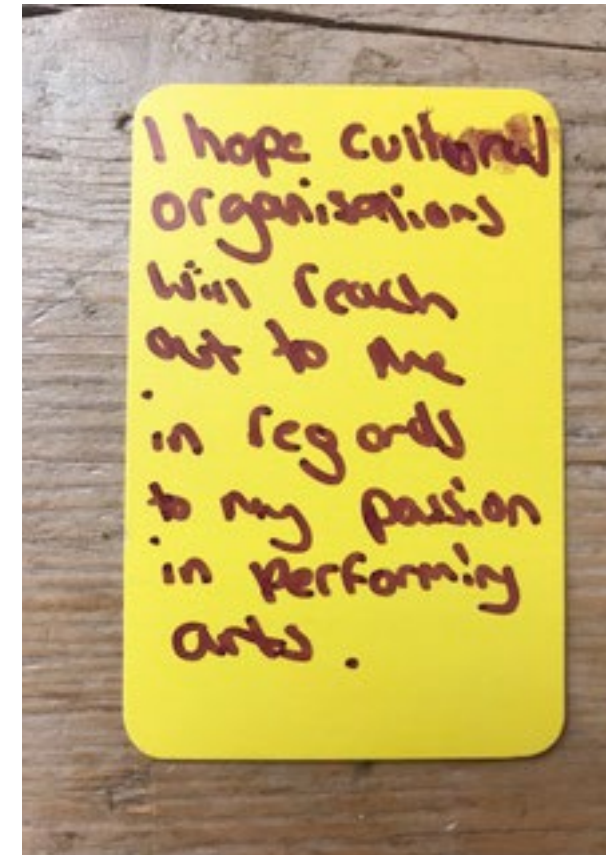 I hope cultural
organisations
will reach
out to me
in regards
to my passion
in performing
arts.